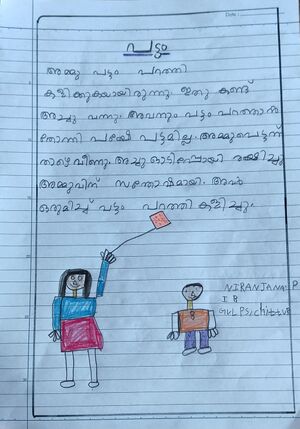 Date :
പട്ടം
അമ്മു പട്ടം പറത്തി
കളിക്കുകയായിരുന്നു. ഇതു കണ്ട്
അച്ചു വന്നു. അവനും പട്ടം പറത്താൻ
തോന്നി പക്ഷേ പട്ടമില്ല. അമ്മുപെട്ടന്ന്
താഴെവീണു. അച്ചു ഓടിപ്പോയി രക്ഷിച്ചു
അമ്മുവിന് സന്തോഷമായി. അവർ
ഒരുമിച്ച് പട്ടം പറത്തി കളിച്ചു.
NIRANJANA P
I B
GULPS chittur